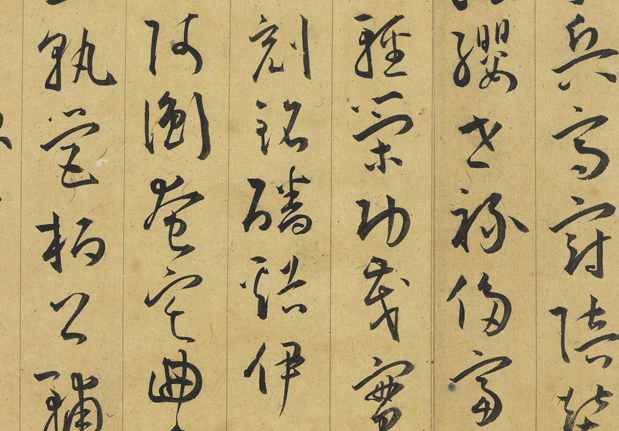 兵高冠陪輦
纓世祿侈富
輕策功茂實
刻銘磻谿伊
阿衡奄宅曲
孰營桓公輔